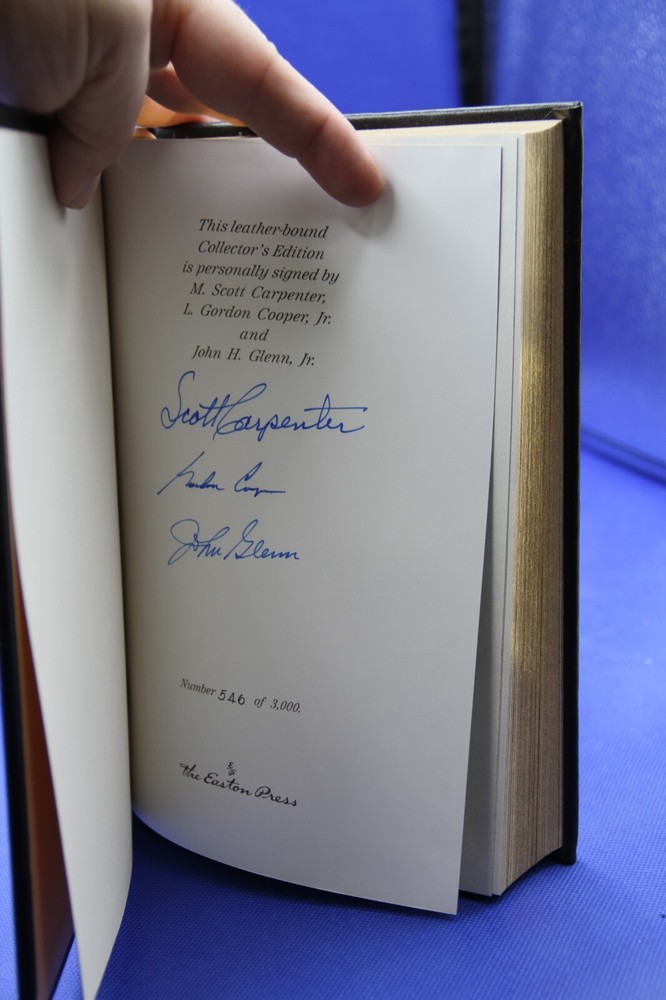 This leather-bound
Collector's Edition
is personally signed by
M. Scott Carpenter,
L. Gordon Cooper, Jr.
and
John H. Glenn, Jr.
Scott Carpenter
Gordon Cooper
John Glenn
Number 546 of 3,000.
The Easton Press